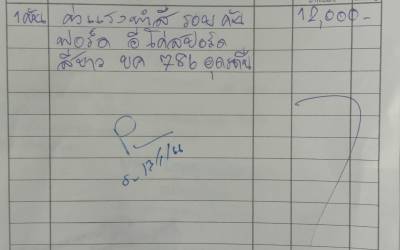 1 คัน ค่าแรงทำสี รอบคัน 12,000-
ฟอร์ด อีโค่สปอร์ต
สีขาว ขค 786 อุดรธานี
17/1/66